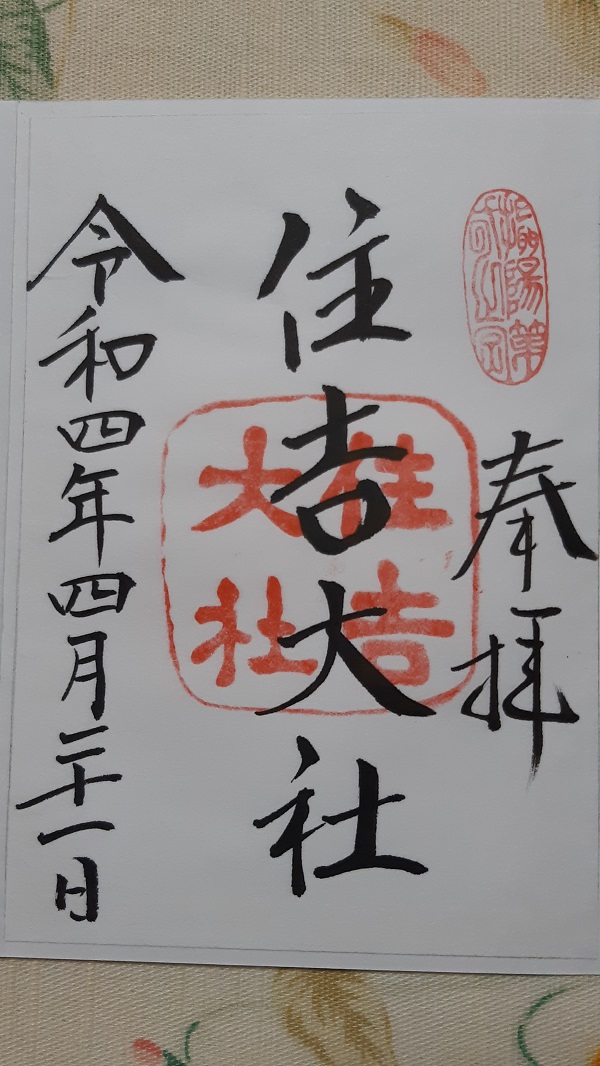 奉拝
住吉大社
住吉
大社
令和四年四月二十一日